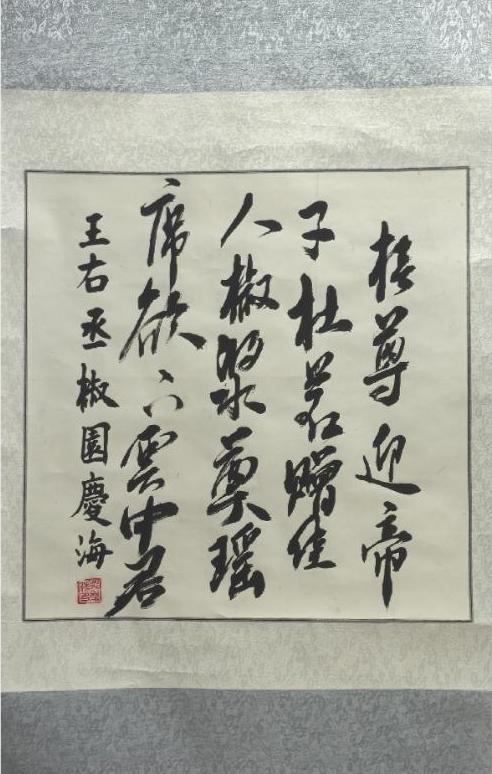 桂尊迎帝
子杜若赠佳
人椒浆奠瑶
席欲下云中君
王右丞椒園慶海